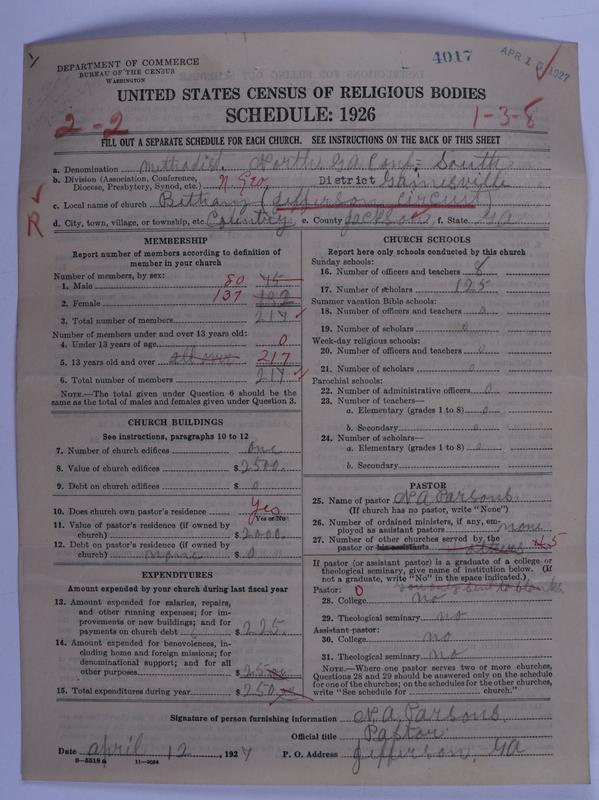 4017
APR 1 1927
DEPARTMENT OF COMMERCE
BUREAU OF THE CENSUS
WASHINGTON
UNITED STATES CENSUS OF RELIGIOUS BODIES
SCHEDULE: 1926
2-2
1-3-8
FILL OUT A SEPARATE SCHEDULE FOR EACH CHURCH. SEE INSTRUCTIONS ON THE BACK OF THIS SHEET
a. Denomination Methodist, North Ga Conf. South
b. Division (Association, Conference, Diocese, Presbytery, Synod, etc.) N. Geo. District Gainesville
c. Local name of church Bethany (Jefferson circuit)
R
d. City, town, village, or township, etc. Country e. County Jackson f. State GA
MEMBERSHIP
Report number of members according to definition of
member in your church
Number of members, by sex:
1. Male 80
2. Female 137
3. Total number of members 217
Number of members under and over 13 years old:
4. Under 13 years of age 0
5. 13 years old and over 217
6. Total number of members 217
NOTE.—The total given under Question 6 should be the
same as the total of males and females given under Question 3.
CHURCH BUILDINGS
See instructions, paragraphs 10 to 12
7. Number of church edifices one
8. Value of church edifices $ 2500.
9. Debt on church edifices $ 0
10. Does church own pastor's residence Yes
Yes or No
11. Value of pastor's residence (if owned by
church) $ 2000.
12. Debt on pastor's residence (if owned by
church) $ 0
EXPENDITURES
Amount expended by your church during last fiscal year
13. Amount expended for salaries, repairs,
and other running expenses; for im-
provements or new buildings; and for
payments on church debt $ 225.
14. Amount expended for benevolences, in-
cluding home and foreign missions; for
denominational support; and for all
other purposes $ 25
15. Total expenditures during year $ 250
CHURCH SCHOOLS
Report here only schools conducted by this church
Sunday schools:
16. Number of officers and teachers 8
17. Number of scholars 125
Summer vacation Bible schools:
18. Number of officers and teachers 0
19. Number of scholars 0
Week-day religious schools:
20. Number of officers and teachers 0
21. Number of scholars 0
Parochial schools:
22. Number of administrative officers 0
23. Number of teachers—
a. Elementary (grades 1 to 8) 0
b. Secondary 0
24. Number of scholars—
a. Elementary (grades 1 to 8) 0
b. Secondary
PASTOR
25. Name of pastor N A Parsons.
(If church has no pastor, write "None")
26. Number of ordained ministers, if any, em-
ployed as assistant pastors none
27. Number of other churches served by the
pastor or his assistants 4 others 5
If pastor (or assistant pastor) is a graduate of a college or
theological seminary, give name of institution below. (If
not a graduate, write "No" in the space indicated.)
Pastor: 0
28. College no
29. Theological seminary no
Assistant pastor:
30. College no
31. Theological seminary no
NOTE.—Where one pastor serves two or more churches,
Questions 28 and 29 should be answered only on the schedule
for one of the churches; on the schedules for the other churches,
write "See schedule for church."
Signature of person furnishing information N. A. Parsons.
Official title Pastor
Date April 12, 1927 P. O. Address Jefferson, GA
8-5518a 11-9064